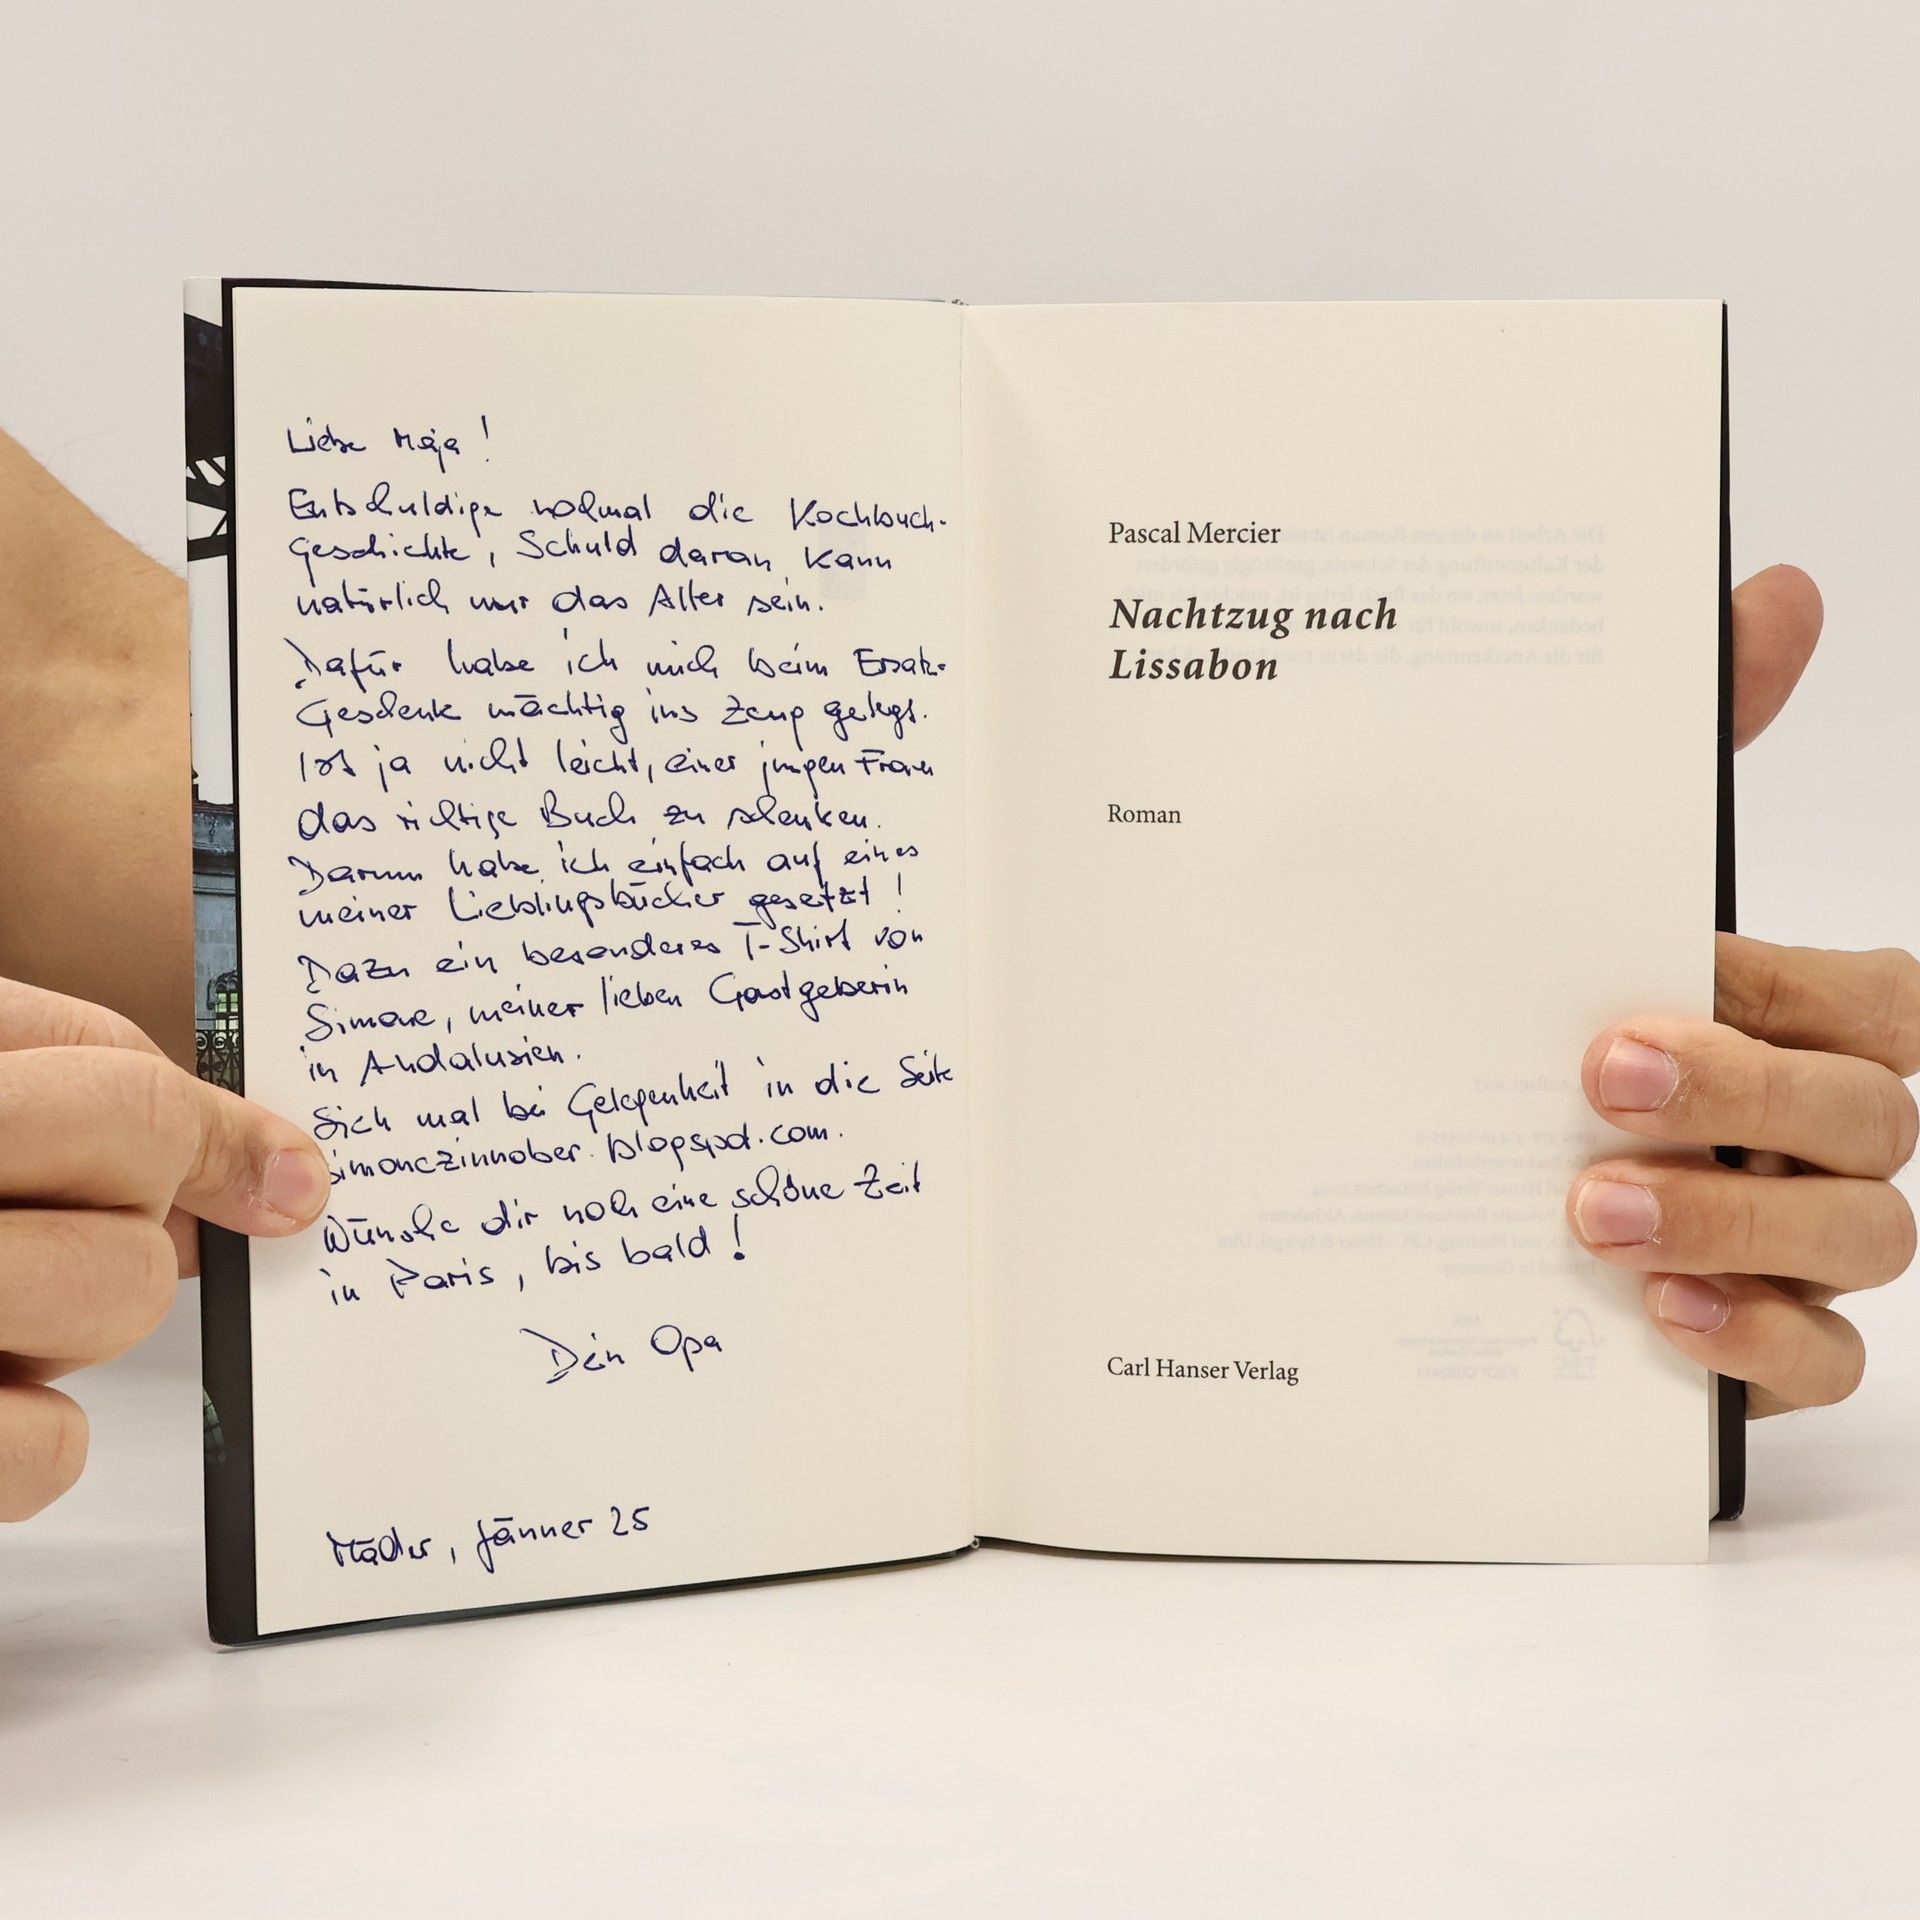 Liebe Maja!
Entschuldige nochmal die Kochbuch-
geschichte, Schuld daran kann
natürlich nur das Alter sein.
Dafür habe ich mich beim Ersatz-
Geschenk mächtig ins Zeug gelegt.
Ist ja nicht leicht, einer jungen Frau
das richtige Buch zu schenken.
Darum habe ich einfach auf eines
meiner Lieblingsbücher gesetzt!
Dazu ein besonderes T-Shirt von
Simone, meiner lieben Gastgeberin
in Andalusien.
Sieh mal bei Gelegenheit in die Seite
simonezinnober.blogspot.com.
Wünsche dir noch eine schöne Zeit
in Paris, bis bald!
Dein Opa
Mäder, Jänner 25
Pascal Mercier
Nachtzug nach
Lissabon
Roman
Carl Hanser Verlag